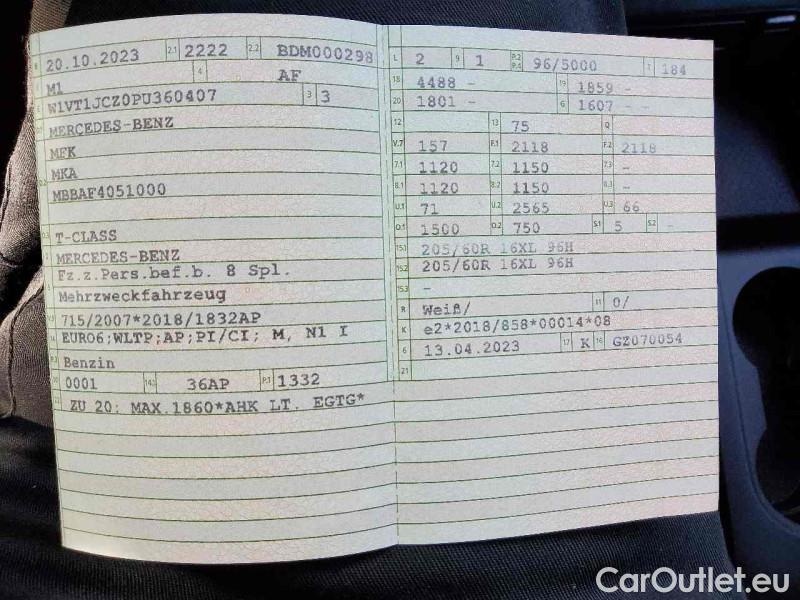 20.10.2023 2.1 2222 2.2 BDM000298
M1 4 AF
W1VT1JCZ0PU360407 3 3
MERCEDES-BENZ
MFK
MKA
MBBAF4051000
T-CLASS
MERCEDES-BENZ
Fz.z.Pers.bef.b. 8 Spl.
Mehrzweckfahrzeug
715/2007*2018/1832AP
EURO6;WLTP;AP;PI/CI; M, N1 I
Benzin
0001 36AP P.1 1332
ZU 20: MAX.1860*AHK LT. EGTG*
L 2 9 1 P.2 P.4 96/5000 T 184
18 4488 - 19 1859 -
20 1801 - G 1607 -
12 13 75 Q
V.7 157 F.1 2118 F.2 2118
7.1 1120 7.2 1150 7.3 -
8.1 1120 8.2 1150 8.3 -
U.1 71 U.2 2565 U.3 66
O.1 1500 O.2 750 S.1 5 S.2 -
15.1 205/60R 16XL 96H
15.2 205/60R 16XL 96H
15.3 -
R Weiß/ 11 0/
K e2*2018/858*00014*08
6 13.04.2023 17 K 16 GZ070054
21
CarOutlet.eu